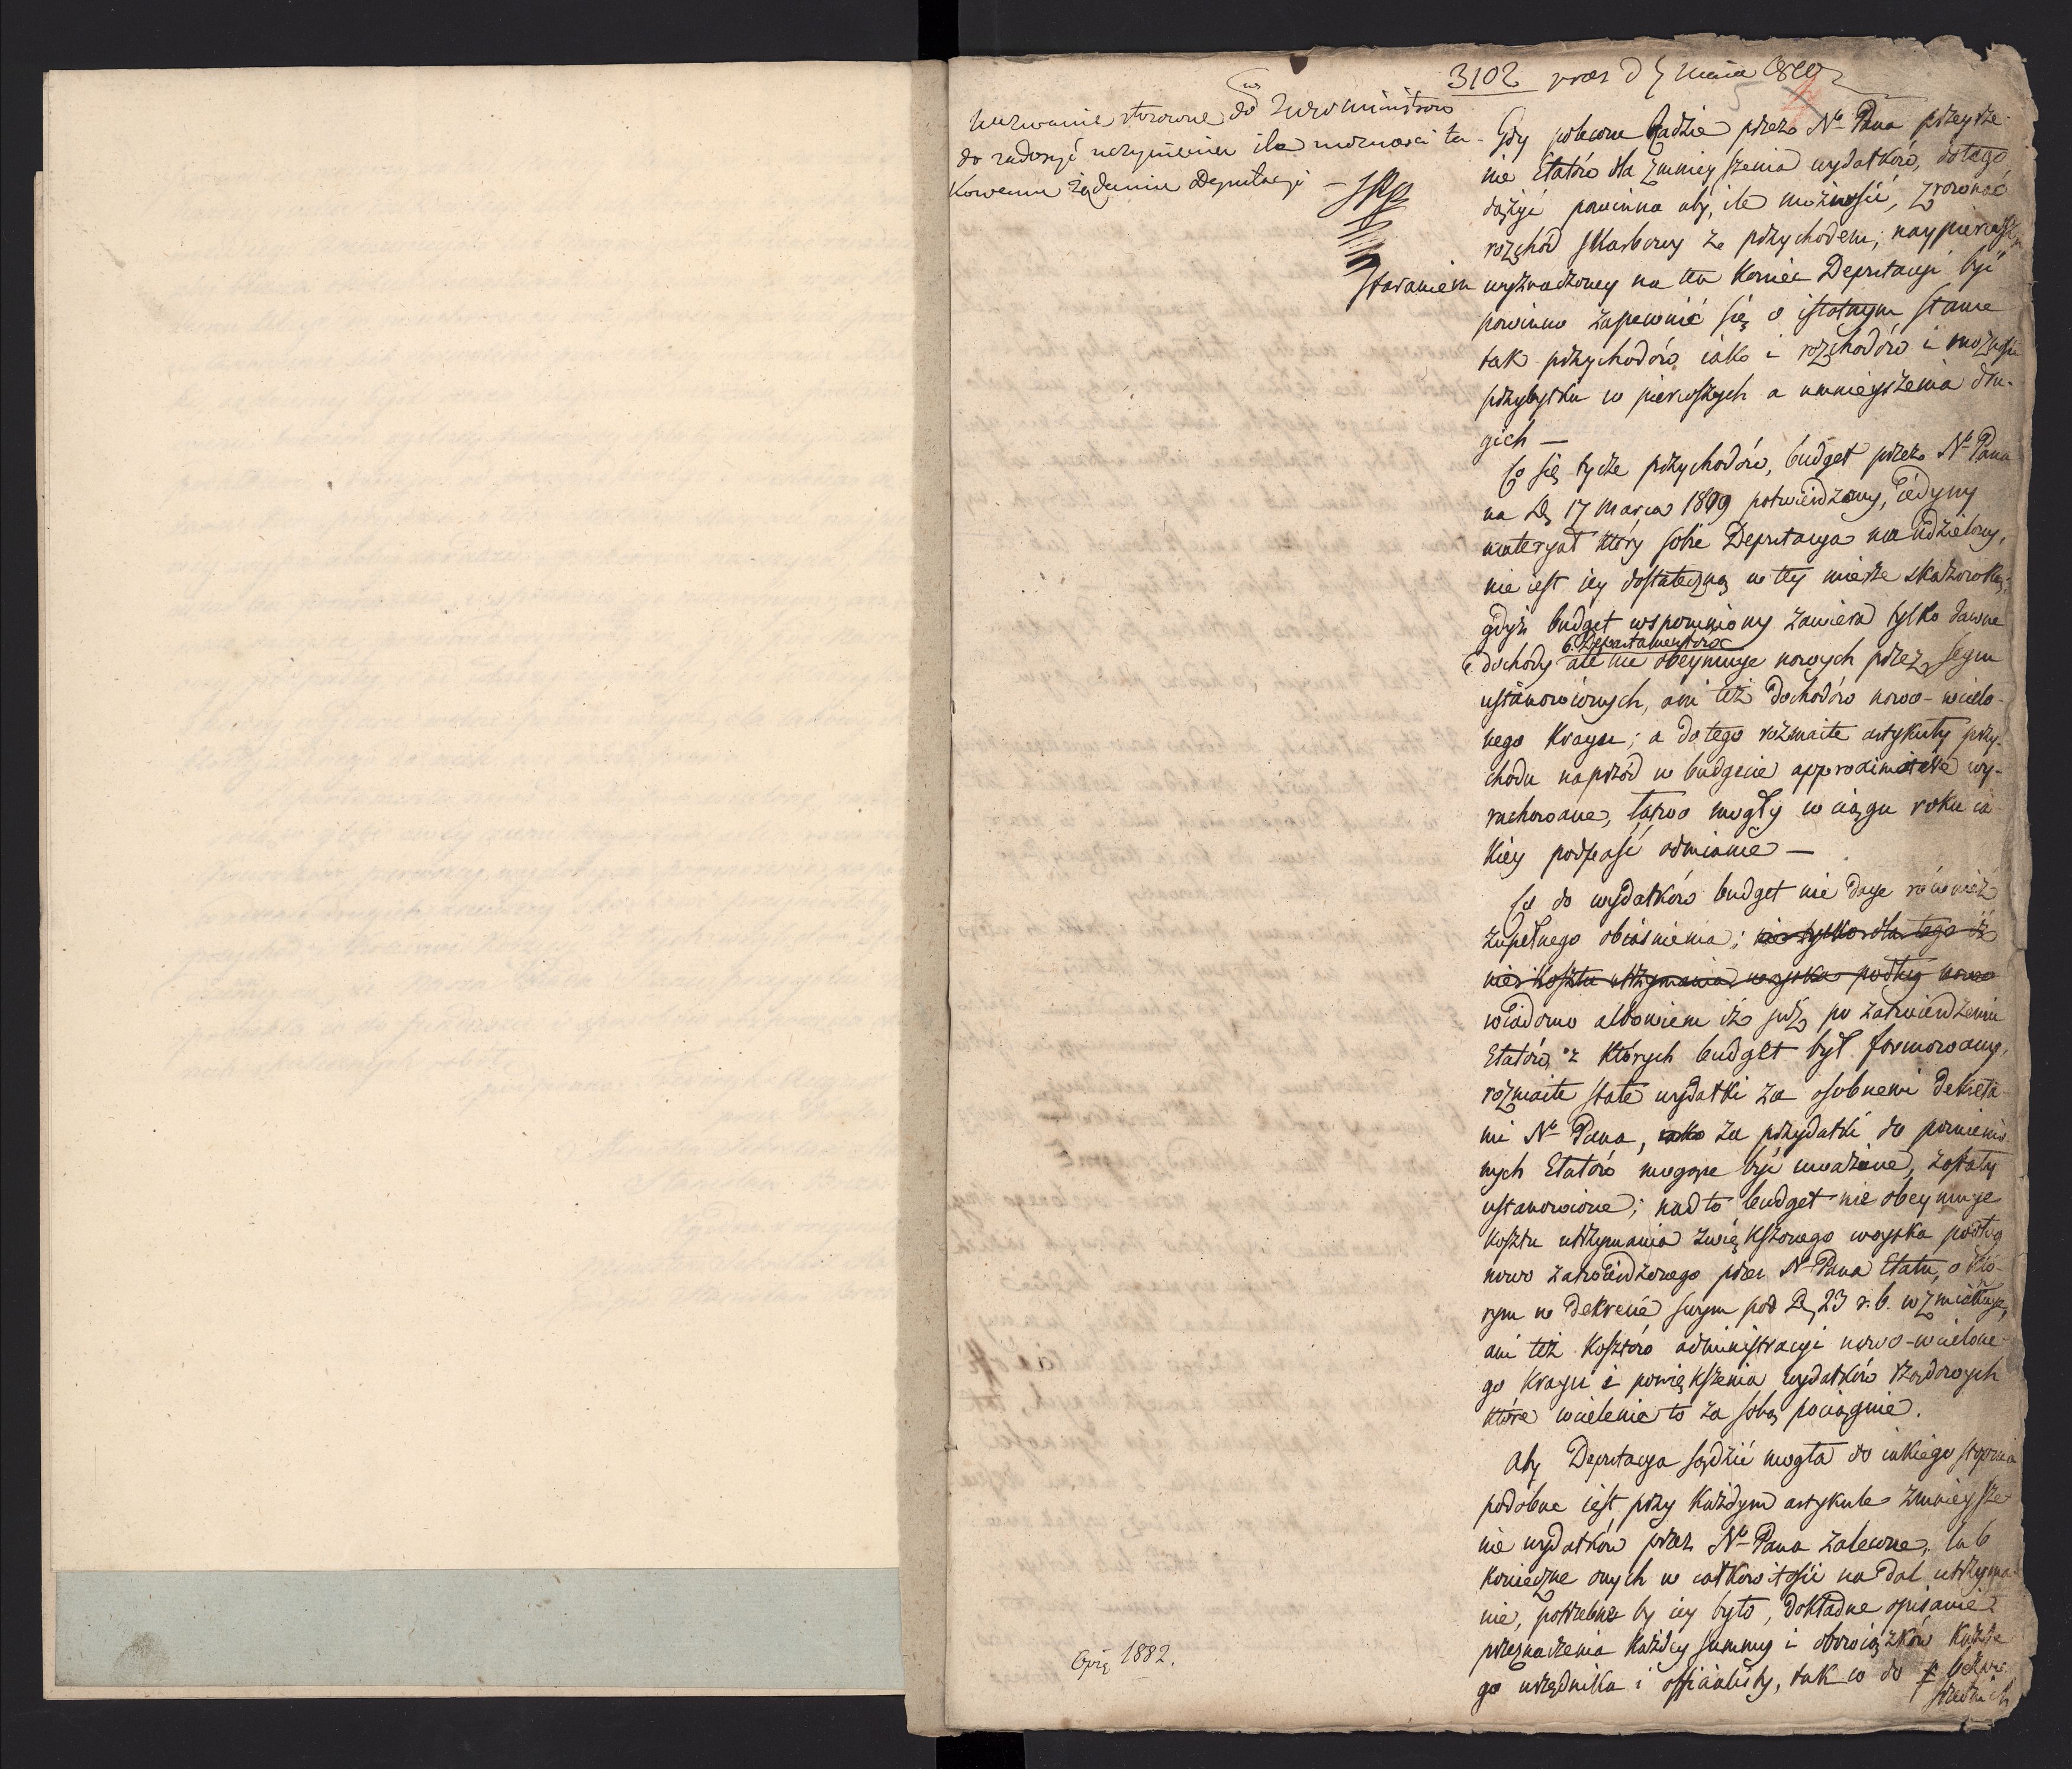 3102 prez d 5 Maia 1810
Wezwanie stosowne do JWW Ministrow
do zadosyć uczynienia ile możności ta-
kowemu żądaniu Deputacyi —
Gdy polecone Radzie przez N° Pana przeyrze-
nie Etatów dla zmnieyszenia wydatków, do tego
dążyć powinno aby, ile możności, zrównać
rozchód skarbowy ze przychodem; naypierwszym
staraniem wyznaczoney na ten koniec Deputacyi być
powinno zapewnić się o istotnym stanie
tak przychodów iako i rozchodów i możności
przybytku w pierwszych a umnieyszenia dru-
gich —
Co się tycze przychodów, budget przez N° Pana
na D. 17 Marca 1809 potwierdzony, iedyny
materyał który sobie Deputacya ma udzielony,
nie iest iey dostateczną w tey mierze skazówką;
gdyż budget wspomniony zawiera tylko dawne
dochody 6. Departamentów ale nie obeymuje nowych przez Seym
ustanowionych, ani też dochodów nowo-wcielo-
nego Kraju; a do tego rozmaite artykuły przy-
chodu naprzód w budgecie approximative wy-
rachowane, łatwo mogły w ciągu roku ia-
kiey podpaść odmianie —
Co do wydatków budget nie daje również
zupełnego obiaśnienia; nie tylko dla tego iż
nie kosztu utrzymania woyska podług nowo
wiadomo albowiem iż już po zatwierdzeniu
Etatów z których budget był formowany,
rozmaite stałe wydatki za osobnemi dekreta-
mi N° Pana, iako za przydatki do pomienio-
nych Etatów mogące być uważane, zostały
ustanowione; nadto budget nie obeymuje
kosztu utrzymania zwiększonego woyska podług
nowo zatwierdzonego przez N° Pana Etatu, o któ-
rym w dekrecie swym pod D. 23 r. b. wzmiankuje,
ani też kosztów administracyi nowo-wcielone-
go Kraju i powiększenia wydatków rządowych
które wcielenie to za sobą pociągnie.
Aby Deputacya sądzić mogła do iakiego stopnia
podobne iest przy każdym artykule zmnieysze-
nie wydatków przez N° Pana zalecone, lub
konieczne onych w całkowitości nadal utrzyma-
nie, potrzebne by iey było, dokładne opisanie
przeznaczenia każdey summy i obowiązków każde-
go urzędnika i officialisty, tak co do bezpo-
średnich
1882.